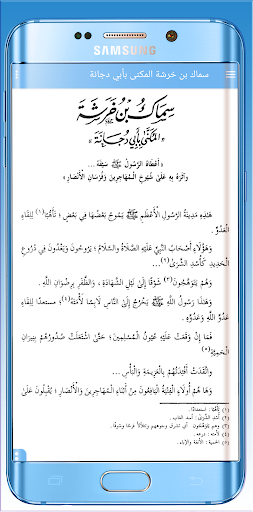 SAMSUNG
سماك بن خرشة المكنى بأبي دجانة
سِمَاكُ بْنُ خَرَشَةَ
«المُكَنَّى بِأَبِي دُجَانَةَ»
«أَعْطَاهُ الرَّسُولُ ﷺ سَيْفَهُ ...
وَآثَرَهُ بِهِ عَلَى شُيُوخِ الْمُهَاجِرِينَ وَفُرْسَانِ الْأَنْصَارِ»
هَذِهِ مَدِينَةُ الرَّسُولِ الْأَعْظَمِ ﷺ يَمُوجُ بَعْضُهَا فِي بَعْضٍ؛ تَأَهُّبًا(١) لِلِقَاءِ
الْعَدُوِّ.
وَهَؤُلَاءِ أَصْحَابُ النَّبِيِّ عَلَيْهِ الصَّلَاةُ وَالسَّلَامُ؛ يَرُوحُونَ وَيَغْدُونَ فِي دُرُوعِ
الْحَدِيدِ كَأُسْدِ الشَّرَىٰ(٢)...
وَهُمْ يَتَوَهَّجُونَ(٣) شَوْقًا إِلَىٰ نَيْلِ الشَّهَادَةِ، وَالظَّفَرِ بِرِضْوَانِ اللَّهِ.
وَهَذَا رَسُولُ اللَّهِ ﷺ يَخْرُجُ إِلَى النَّاسِ لَابِسًا لَأْمَتَهُ(٤)؛ مستعدًا لِلِقَاءِ
عَدُوِّ اللَّهِ وَعَدُوِّهِ.
فَمَا إِنْ وَقَعَتْ عَلَيْهِ عُيُونُ الْمُسْلِمِينَ؛ حَتَّىٰ اشْتَعَلَتْ صُدُورُهُمْ بِنِيرَانِ
الْحَمِيَّةِ(٥)
وَاتَّقَدَتْ أَفْئِدَتُهُمْ بِالْعَزِيمَةِ وَالْبَأْسِ...
وَهَا هُمْ أُولَاءِ الْفِتْيَةُ الْيَافِعُونَ مِنْ أَبْنَاءِ الْمُهَاجِرِينَ وَالْأَنْصَارِ؛ يُقْبِلُونَ عَلَىٰ
(١) تأهُّبًا: استعدادًا.
(٢) أُسْدِ الشَّرَىٰ: أسد الغاب.
(٣) وهم يتوهجون: أي تشرق وجوههم وتتلألأ فرحًا وشوقًا.
(٤) لأمته: درعه.
(٥) الحمية: الأنفة والإباء.